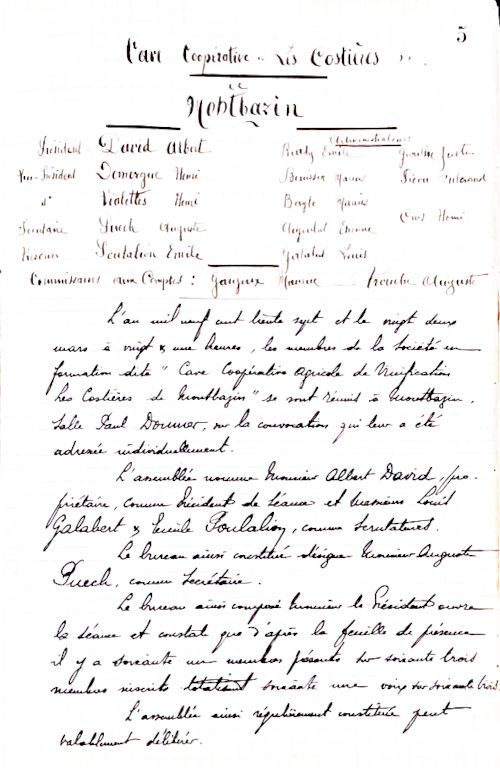 5
Cave Coopérative "Les Costières".
Montbazin
Administrateurs
Président David Albert Emile
Vice-Président Domergue Henri Marius
d° Violettes Henri Bayle Marius
Secrétaire Puech Auguste Etienne Cros Henri
Trésorier Poulalion Emile Galabert Louis
Commissaires aux Comptes : Maurice Auguste
L'an mil neuf cent trente sept et le vingt deux
mars à vingt & une heures, les membres de la Société en
formation dite "Cave Coopérative Agricole de Vinification
Les Costières de Montbazin" se sont réunis à Montbazin,
Salle Paul Doumer, sur la convocation qui leur a été
adressée individuellement.
L'assemblée nomme Monsieur Albert David, pro-
priétaire, comme Président de Séance et Messieurs Louis
Galabert & Emile Poulalion, comme Scrutateurs.
Le bureau ainsi constitué désigne Monsieur Auguste
Puech, comme Secrétaire.
Le bureau ainsi composé Monsieur le Président ouvre
la séance et constate que d'après la feuille de présence
il y a soixante un membres présents sur soixante trois
membres inscrits totalisant soixante une voix sur soixante trois.
L'assemblée ainsi régulièrement constituée peut
valablement délibérer.